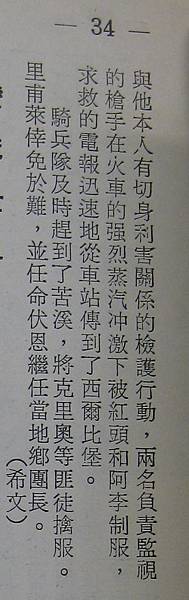 — 34 —
與他本人有切身利害關係的檢護行動，兩名負責監視
的槍手在火車的强烈蒸汽冲激下被紅頭和阿李制服，
求救的電報迅速地從車站傳到了西爾比堡。
騎兵隊及時趕到了苦溪，將克里奧等匪徒擒服。
里甫萊倖免於難，並任命伏恩繼任當地鄉團長。
（希文）